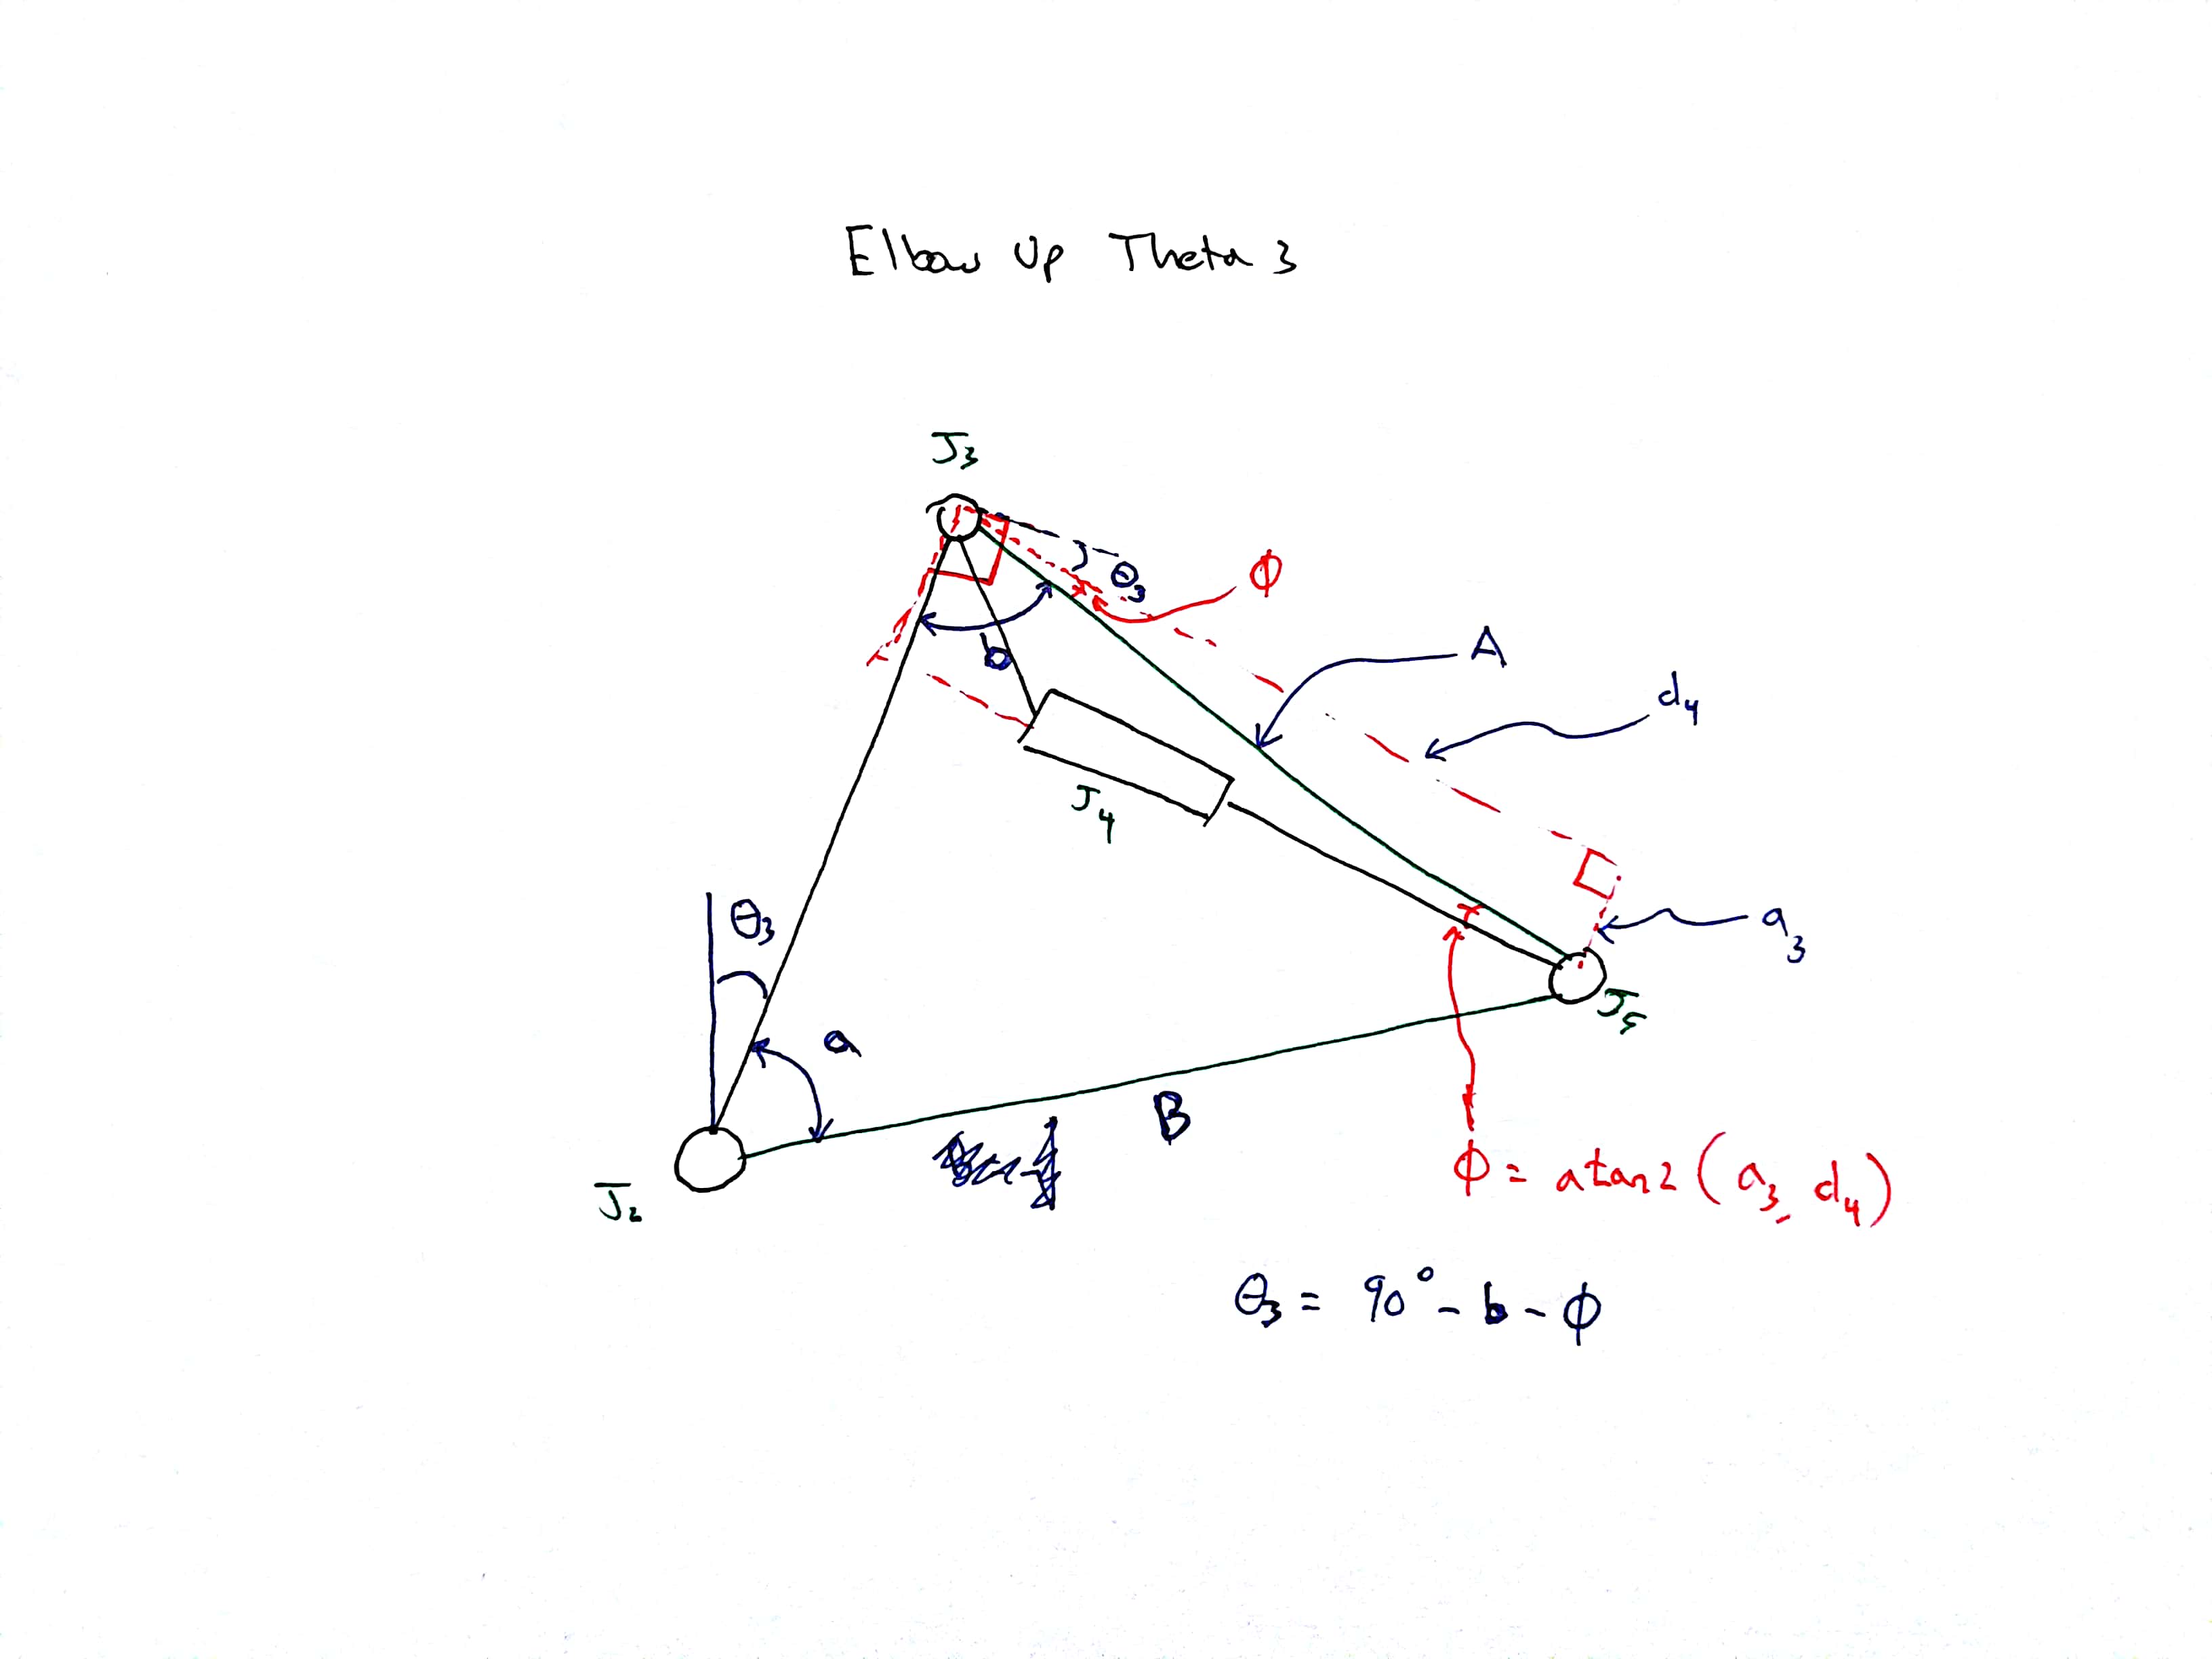 Elbow Up Theta 3
J3
θ3
ϕ
A
b
d4
J4
θ3
a3
a
J5
B
J2
ϕ = atan2(a3, d4)
θ3 = 90° - b - ϕ